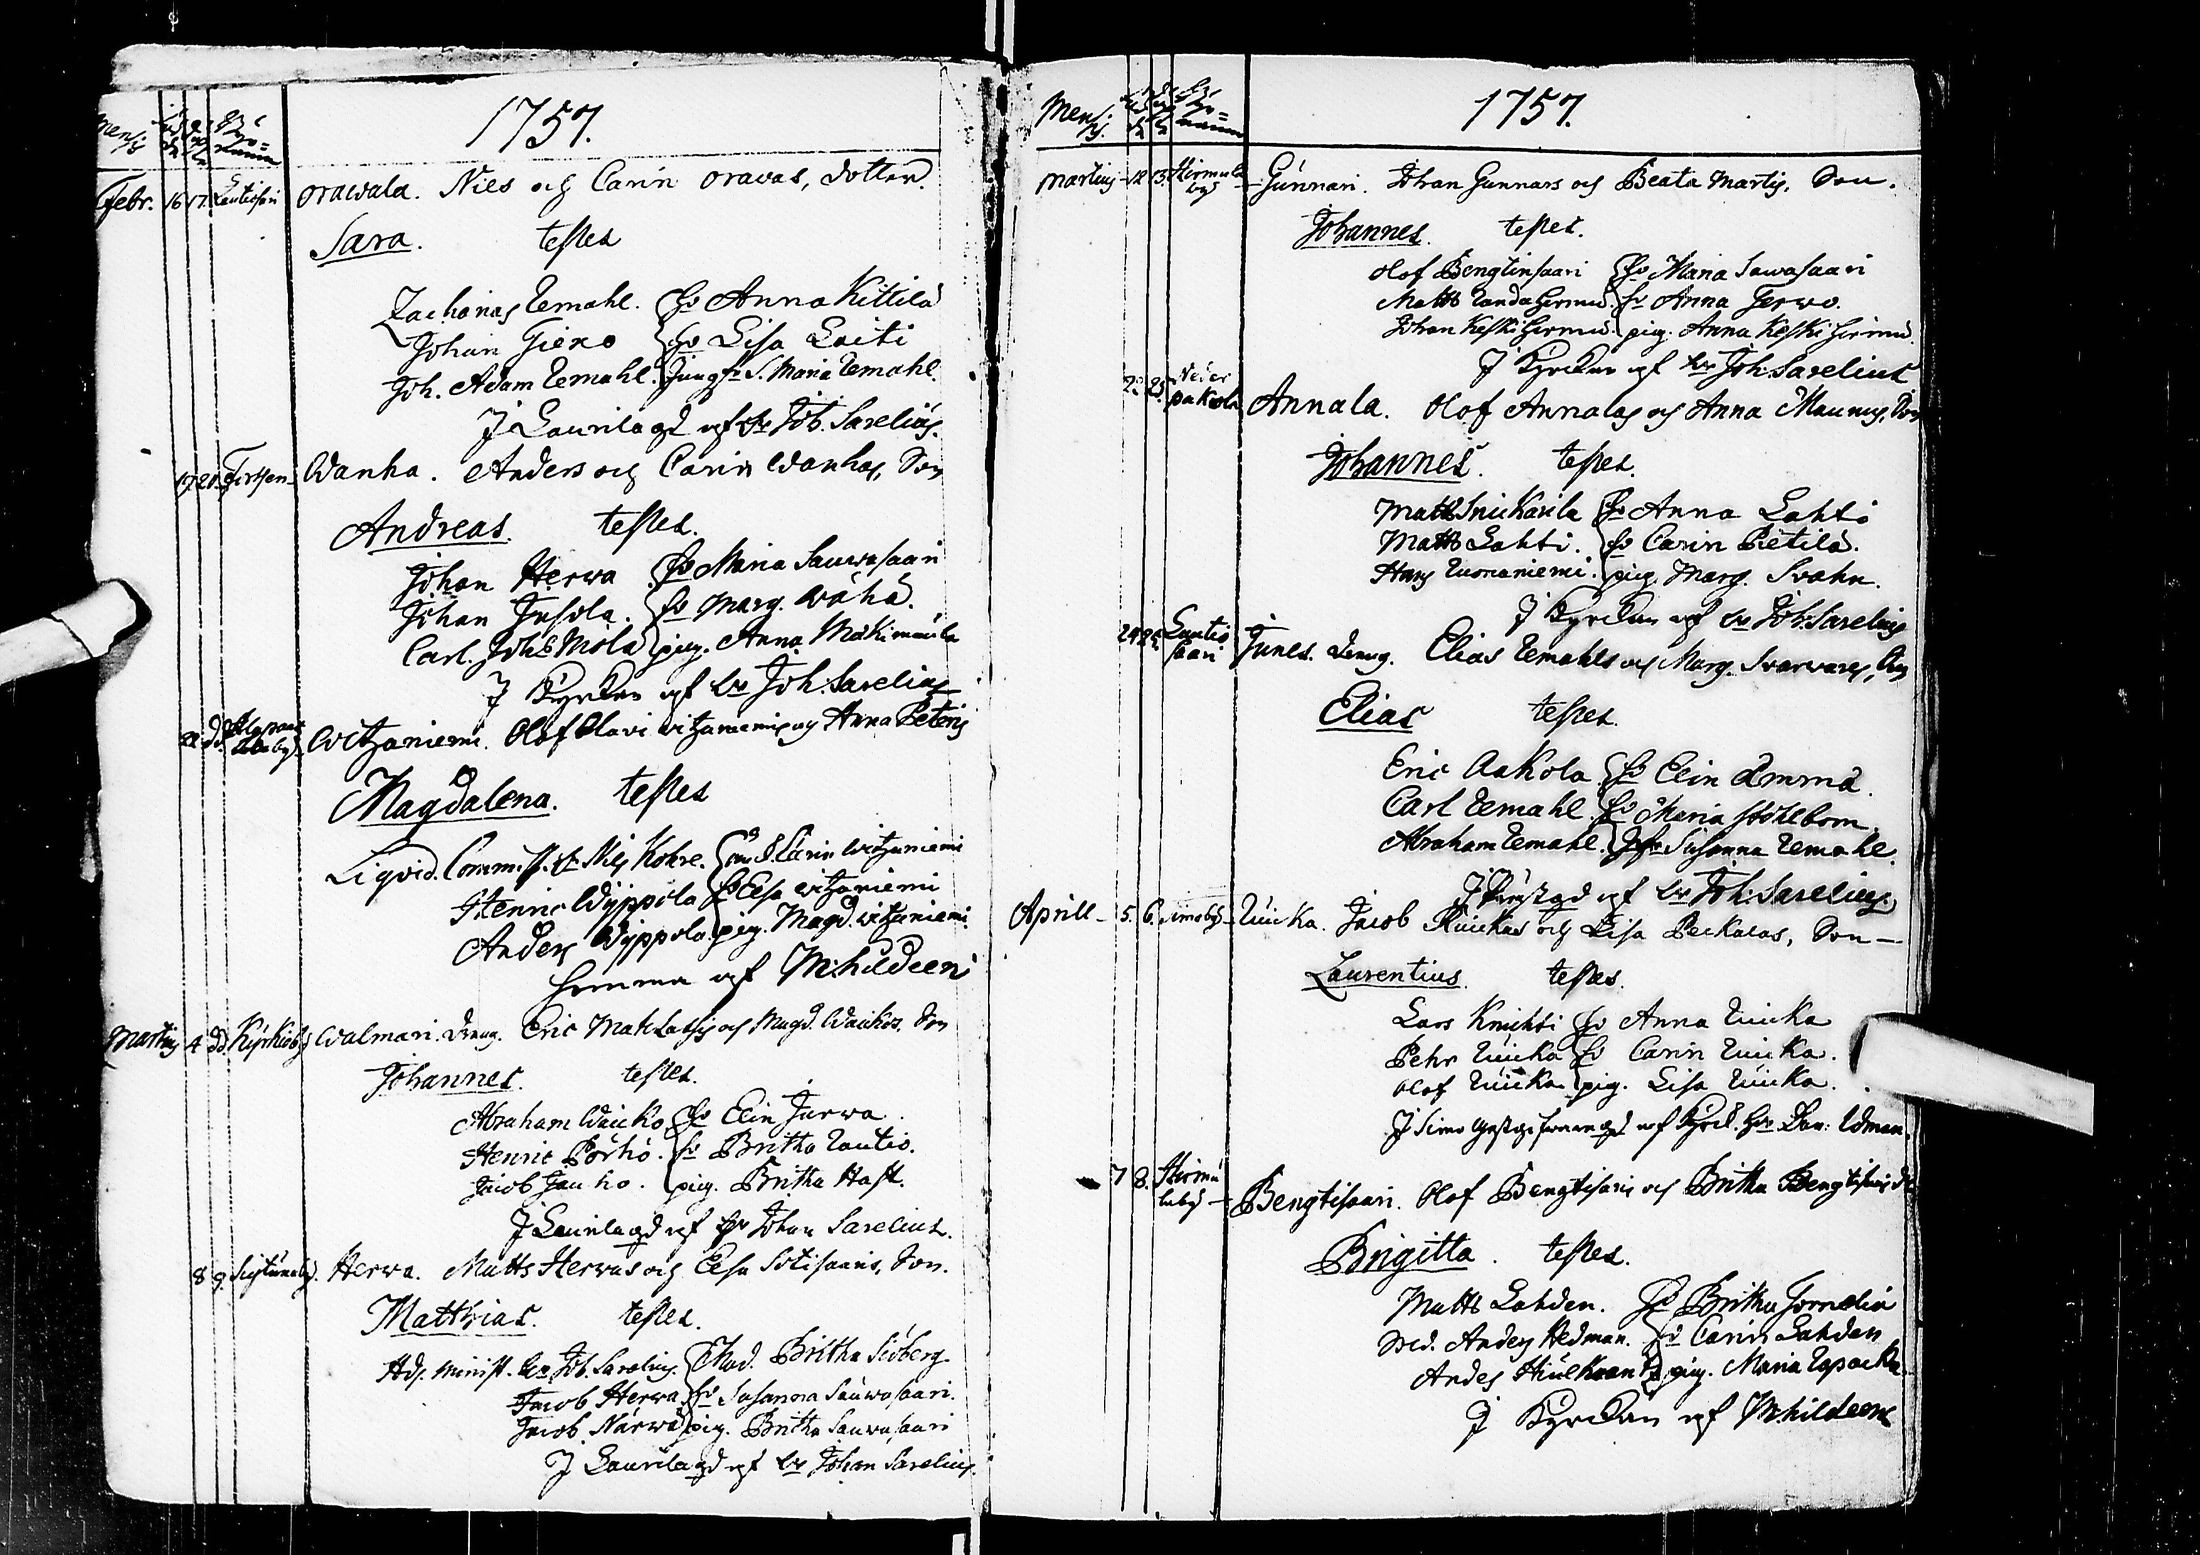 Mensis
1757.
Febr. 16 17. Lautiosari Orawala. Nils och Carin Orawas, dotter.
Sara. testes
Zacharias Temahl. hu Anna Kittilä
Johan Giers hu Lisa Laiti
Joh. Adam Temahl. Jungfr. S. Maria Temahl.
J Laurila gd af hr Joh. Sarelius.
17. 20. Wanha. Anders och Carin Wanhas, Son
Andreas. testes.
Johan Herwa hu Maria Sauwosaari
Johan Jusola. hu Marg. Wähä.
Carl. Joh: Mola pig. Anna Mäkimaula
J Kyrckan af hr Joh: Sarelius
dd. Witzaniemi. Olof Olavi Witzaniemis och Anna Peteris
Magdalena. testes
Liqvid. Commiss. hr Nils Kohre. S. Carin Witzaniemi
Henric Wyppola hu Elsa Witzaniemi
Anders Wyppola. pig. Magd. Witzaniemi.
Hemma af M: hildeen
Martius 4 dd. Kyrkioby Walmari. dreng. Eric Mathlassis och Magd. Waickos. Son
Johannes. testes.
Abraham Waicko hu Elin Jurwa.
Henric Pörhö. hu Britha Rautio.
Jacob Jauho. pig. Britha Hast.
J Laurila gd af hr Johan Sarelius.
8 9. Herwa. Matts Herwas och Elsa Sotisaaris, Son.
Matthias. testes.
Adj. Minist. hr Joh. Sarelius. Mad. Britha Siöberg
Jacob Herwa hu Susanna Sauwosaari.
Jacob Närwä pig. Britha Sauwosaari
J Laurila gd af hr Johan Sarelius.
Mensis
1757.
Martius 12 13. Hirmula by Gunnari. Johan Gunnars och Beata Martis, Son.
Johannes. testes.
Olof Bengtinsaari hu Maria Sawosaari
Matts hu Anna Jerwo.
Johan Keskihirmu. pig. Anna Keskihirmu.
J Kyrckan af hr Joh: Sarelius
Neder paakola Annala. Olof Annalas och Anna Maunus, Son
Johannes. testes.
Matts Snickarila hu Anna Lahti
Matts Lahti. hu Carin Pietilä.
Hans Tuomaniemi. pig. Marg. Svahn.
J Kyrckan af hr Joh: Sarelius
24 25. Lautio saari Junes. dreng. Elias Temahls och Marg. Svarwars, Son
Elias testes.
Eric Aakola. hu Elin Ämmä.
Carl Temahl. hu Maria Stöhlbom.
Abraham Temahl. Jgfr Susanna Temahl.
J Prästgd af hr Joh: Sarelius
Aprill 5. 6. Simoby Tuicka. Jacob Tuickas och Lisa Peckalas, Son
Laurentius. testes.
Lars Knihti hu Anna Tuicka
Pehr Tuicka hu Carin Tuicka.
Olof Tuicka pig. Lisa Tuicka.
J Simo af Kyrck. hr Dan: Udman.
7 8. Hirmu laby Bengtisaari. Olof Bengtisaris och Britha Bengtisaris dr
Brigitta. testes.
Matts Lahden. hu Britha Jornelia
Anders Hedman. hu Carin Lahden
Anders pig. Maria Tapocka
J Kyrckan af M: hildeen